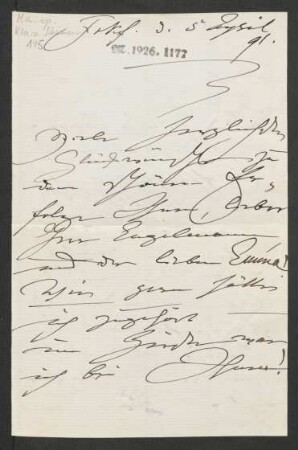 Frkf. d. 5 April
91.
DK. 1926. 1177
Viele herzlichste
Glückwünsche zu
dem schönen Er„
folge Ihnen, lieber
Herr Engelmann
und der lieben Emma!
Wie gern hätte
ich zugehört
im Geiste war
ich bei Ihnen!